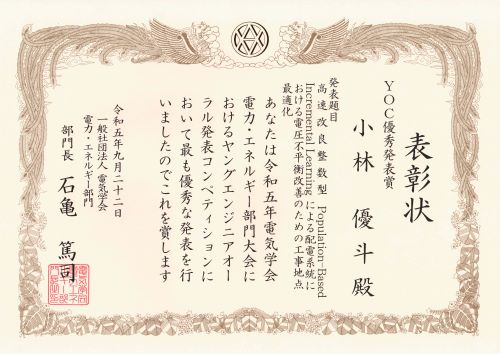 表彰状
YOC優秀発表賞
小林 優斗 殿
発表題目
高速改良整数型 Population-Based
Incremental Learning による配電系統に
おける電圧不平衡改善のための工事地点
最適化
あなたは令和五年電気学会
電力・エネルギー部門大会に
おけるヤングエンジニアオー
ラル発表コンペティションに
おいて最も優秀な発表を行
いましたのでこれを賞します
令和五年九月二十二日
一般社団法人 電気学会
電力・エネルギー部門
部門長 石亀 篤司